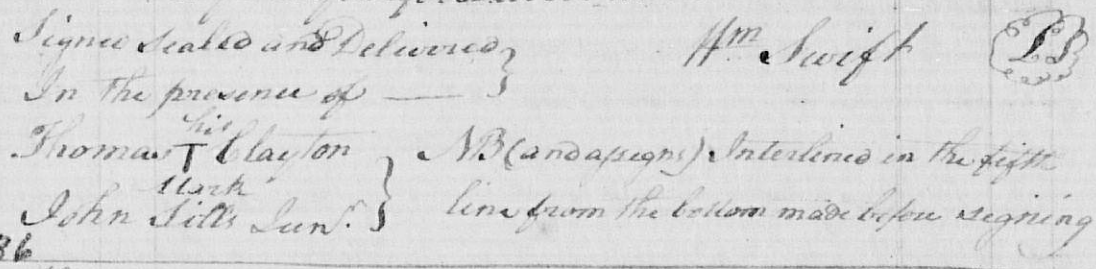 Signed sealed and Delivered }
In the presence of — }
Wm Swift LS
his
Thomas T Clayton }
Mark
John Sills Junr. }
NB (and assigns) Interlined in the fifth
line from the bottom made before signing
36